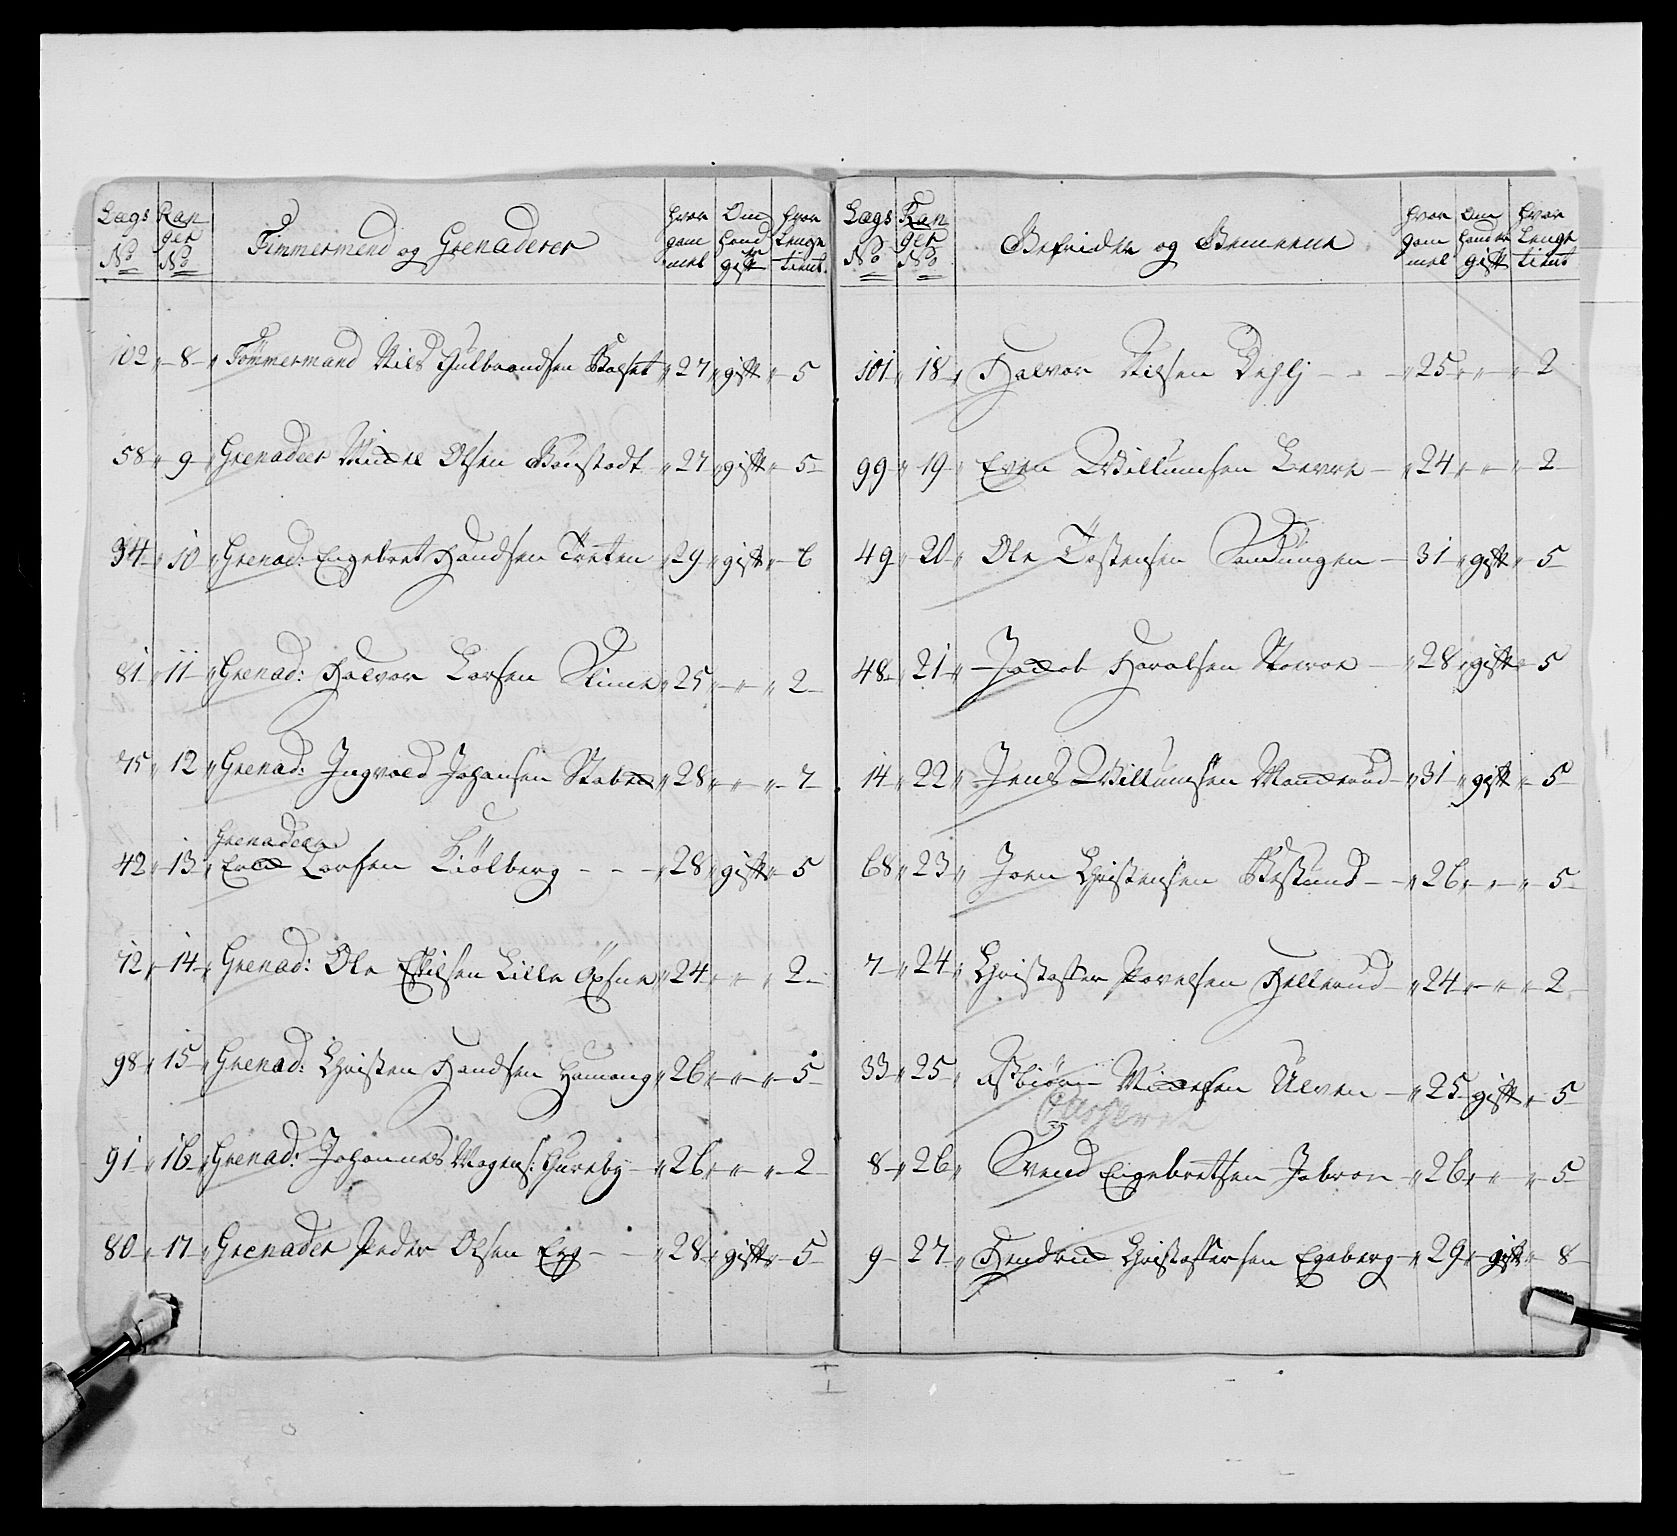 Lægs No | Ran ger No | Timmermend og Grenaderer | hvor gam mel | Om hand er gift | hvor Lenge tient
102 8 Tömmermand Nils Gulbrandsen Bolset 27 gift 5
58 9 Grenadeer Michel Olsen Bonstadt 27 gift 5
34 10 Grenad: Engebret Handsen Treten 29 gift 6
81 11 Grenad: Halvor Larsen Slime 25 2
75 12 Grenad: Ingvold Johansen Stabeck 28 7
Grenadeer
42 13 Erich Larsen Kiölberg 28 gift 5
72 14 Grenad: Ole Eskilsen Lille Öxne 24 2
98 15 Grenad: Christen Handsen Hamang 26 5
91 16 Grenad: Johannes Mogens: Gureby 26 2
80 17 Grenader Peder Olsen Eeg 28 gift 5
Lægs No | Ran ger No | Befrider og Gemeene | hvor gam mel | Om hand er gift | hvor Lenge tient
101 18 Halvor Nilsen Dehlj 25 2
99 19 Even Willumsen Levre 24 2
49 20 Ole Tostensen Sandungen 31 gift 5
48 21 Jacob Haralsen Stovre 28 gift 5
14 22 Jens Willumsen Manderud 31 gift 5
68 23 Joen Christensen Bestund 26 5
7 24 Christoffer Povelsen Hellerud 24 2
33 25 Asbiörn Michelsen Ulven 25 gift 5
Casseret
8 26 Svend Engebretsen Jobron 26 5
9 27 Hendrich Christoffersen Egeberg 29 gift 8